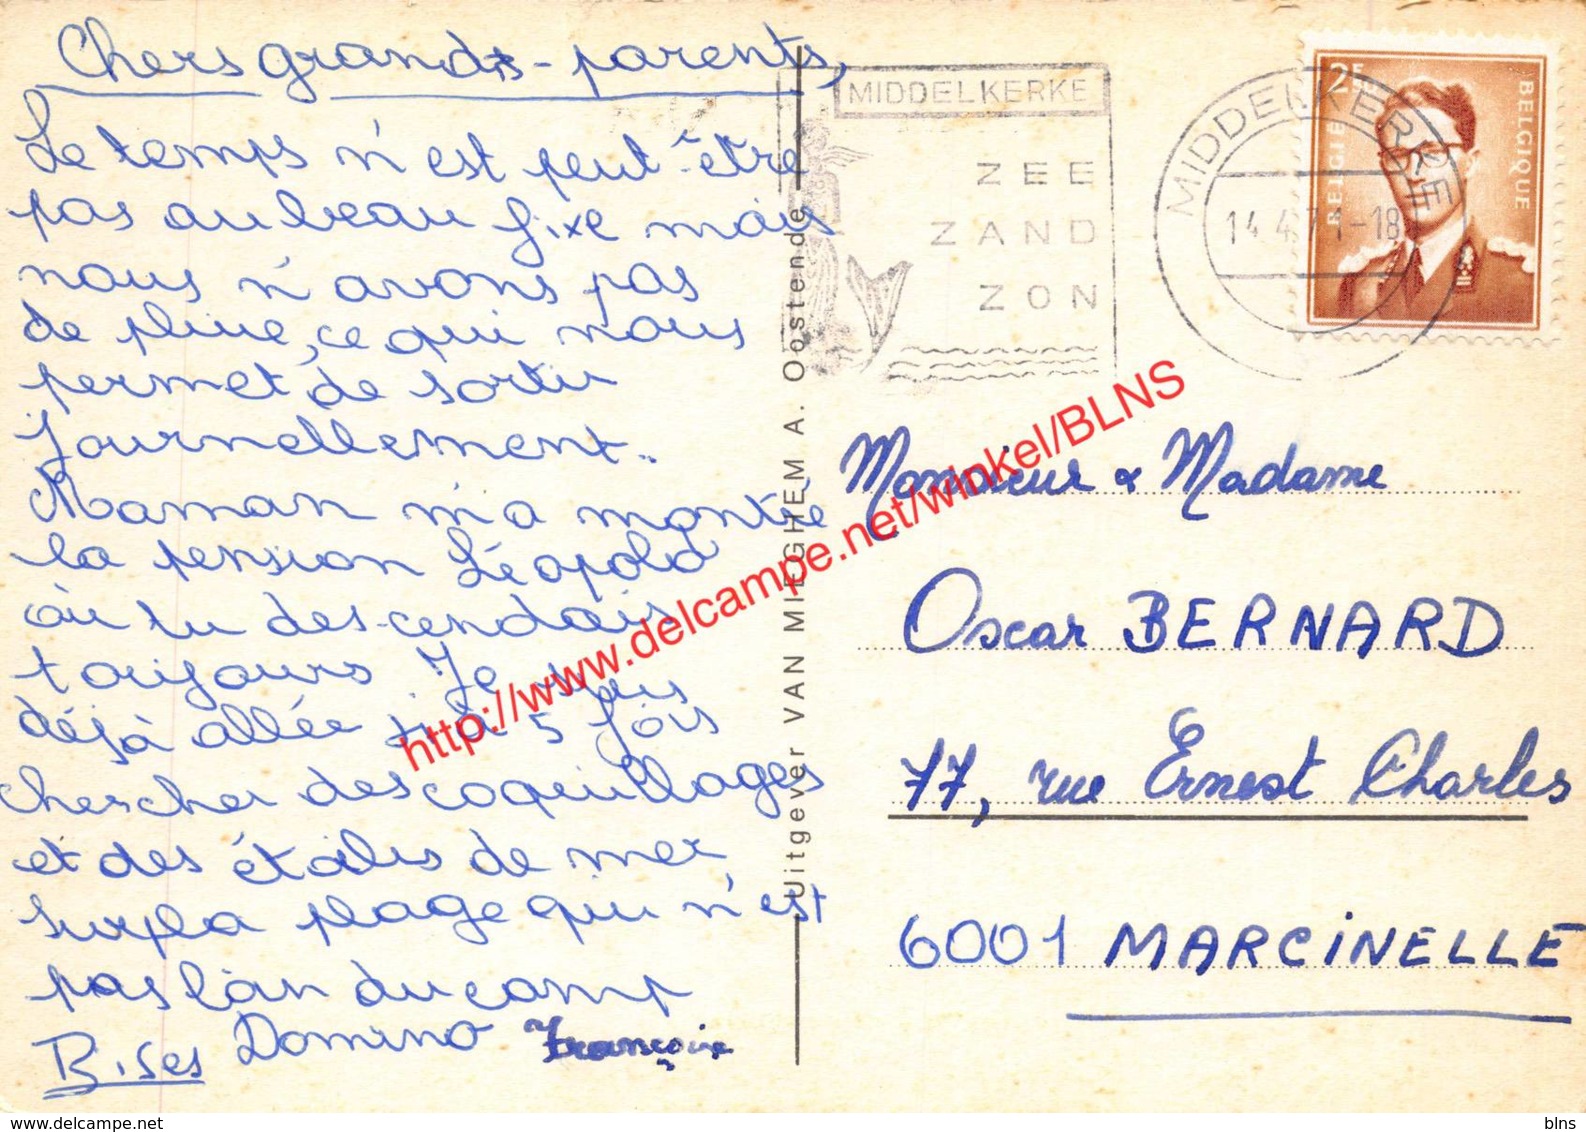 Chers grands-parents,
Le temps n'est peut-être
pas au beau fixe mais
nous n'avons pas
de pluie, ce qui nous
permet de sortir
journellement.
Maman m'a montré
la pension Léopold
où tu des-cendais
toujours. Je suis
déjà allée 4 à 5 fois
chercher des coquillages
et des étoiles de mer
sur la plage qui n'est
pas loin du camp
Domino
Bises
Françoise
Uitgever VAN MIEGHEM A. Oostende
MIDDELKERKE
ZEE
ZAND
ZON
MIDDELKERKE
14.4.71-18
2F
BELGIË
BELGIQUE
Monsieur & Madame
Oscar BERNARD
77, rue Ernest Charles
6001 MARCINELLE
http://www.delcampe.net/winkel/BLNS
www.delcampe.net
blns